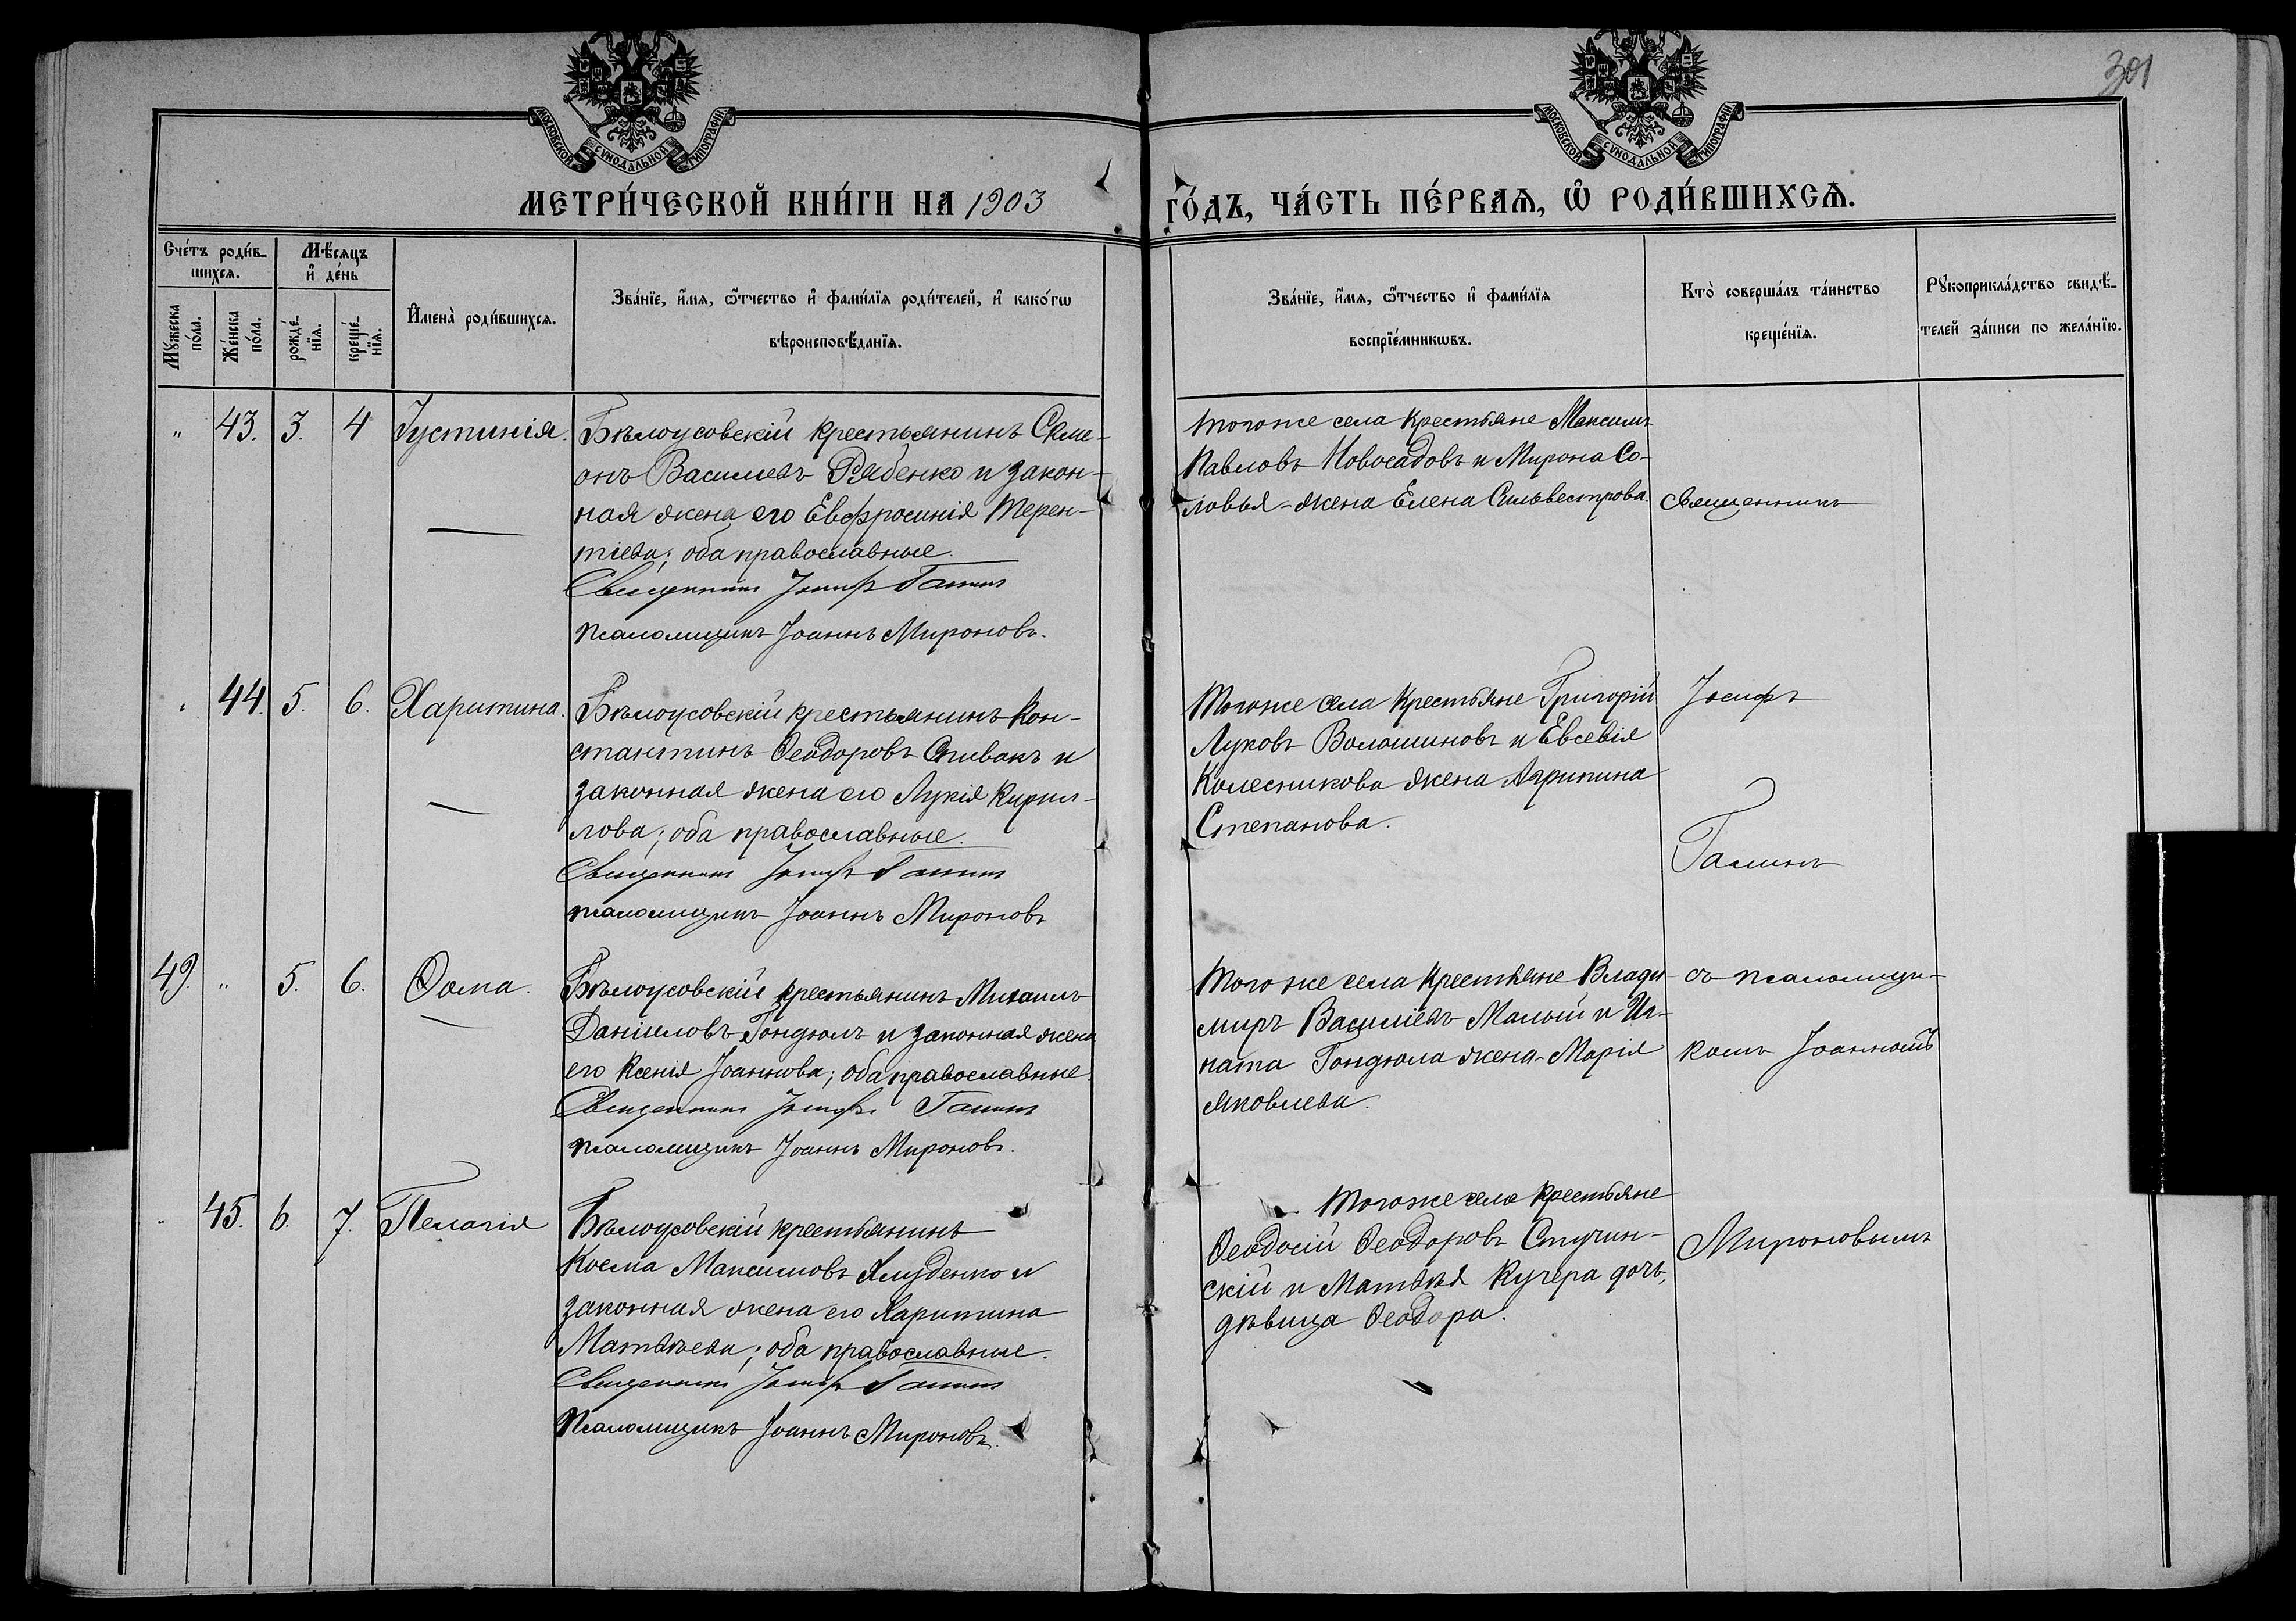 301
МОСКОВСКОЙ СУНОДАЛЬНОЙ ТИПОГРАФІИ
МОСКОВСКОЙ СУНОДАЛЬНОЙ ТИПОГРАФІИ
МЕТРИ́ЧЕСКОЙ КНИ́ГИ НА 1903
ГО́ДЪ, ЧА́СТЬ ПЕ́РВАѦ, Ѽ РОДИ́ВШИХСѦ.
Сче́тъ роди́в-
шихсѧ.
Мѣ́сѧцъ
и҆ де́нь
Мꙋ́жеска
по́ла.
Же́нска
по́ла.
рожде́-
нїѧ.
креще́-
нїѧ.
И҆мена̀ роди́вшихсѧ.
Зва́нїе, и҆́мѧ, ѻ҆́тчество и҆ фами́лїѧ роди́телей, и҆ како́гѡ
вѣроисповѣ́данїѧ.
Зва́нїе, и҆́мѧ, ѻ҆́тчество и҆ фами́лїѧ
воспрїе́мникѡвъ.
Кто̀ соверша́лъ та́инство
креще́нїѧ.
Рꙋкоприкла́дство свидѣ́-
телей за́писи по жела́нїю.
" 43. 3. 4 Іустинія.
Бѣлоусовскій крестьянинъ Симе-
онъ Василіевъ Рябенко и закон-
ная жена его Евфросинія Терен-
тіева; оба православные.
Священникъ Іосифъ Галинъ
Псаломщикъ Іоаннъ Мироновъ.
Того же села крестьяне Максимъ
Павловъ Новосадовъ и Мирона Со-
ловья - жена Елена Сильвестрова
Священникъ
" 44. 5. 6. Харитина.
Бѣлоусовскій крестьянинъ Кон-
стантинъ Ѳеодоровъ Спивакъ и
законная жена его Лукія Кирил-
лова; оба православные.
Священникъ Іосифъ Галинъ
псаломщикъ Іоаннъ Мироновъ
Того же села крестьяне Григорій
Луковъ Волошиновъ и Евсевія
Колесникова жена Агрипина
Степанова.
Іосифъ
Галинъ
49. " 5. 6. Ѳома.
Бѣлоусовскій крестьянинъ Михаилъ
Даніиловъ Гондюлъ и законная жена
его Ксенія Іоаннова; оба православные.
Священникъ Іосифъ Галинъ
псаломщикъ Іоаннъ Мироновъ.
Того же села крестьяне Влади-
миръ Василіевъ Малый и Иг-
ната Гондюла жена - Марія
Яковлева.
съ псаломщи-
комъ Іоанномъ
" 45. 6. 7. Пелагія
Бѣлоусовскій крестьянинъ
Косма Максимовъ и
законная жена его Харитина
Матѳѣева; оба православные.
Священникъ Іосифъ Галинъ
Псаломщикъ Іоаннъ Мироновъ.
Того же села крестьяне
Ѳеодосій Ѳеодоровъ Стучин-
скій и Матѳѣя Кучера дочь,
дѣвица Ѳеодора.
Мироновымъ